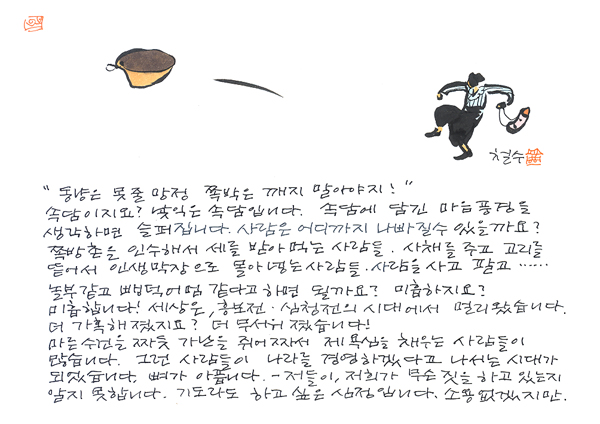 철수
"동냥은 못줄 망정 쪽박은 깨지 말아야지!"
속담이지요? 낯익은 속담입니다. 속담에 담긴 마음풍경을
생각하면 슬퍼집니다. 사람은 어디까지 나빠질수 있을까요?
쪽방촌을 인수해서 세를 받아먹는 사람들. 사채를 주고 고리를
뜯어서 인생막장으로 몰아넣는 사람들. 사람을 사고 팔고 ……
놀부같고 뺑덕어멈 같다고하면 될까요? 미흡하지요?
미흡합니다! 세상은, 흥보전·심청전의 시대에서 멀리왔습니다.
더 가혹해졌지요? 더 무서워졌습니다!
마른 수건을 짜듯 가난을 쥐어짜서 제 욕심을 채우는 사람들이
많습니다. 그런 사람들이 나라를 경영하겠다고 나서는 시대가
되었습니다. 뼈가 아픕니다. -저들이, 저희가 무슨 짓을 하고 있는지
알지 못합니다. 기도라도 하고 싶은 심정입니다. 소용 없겠지만.